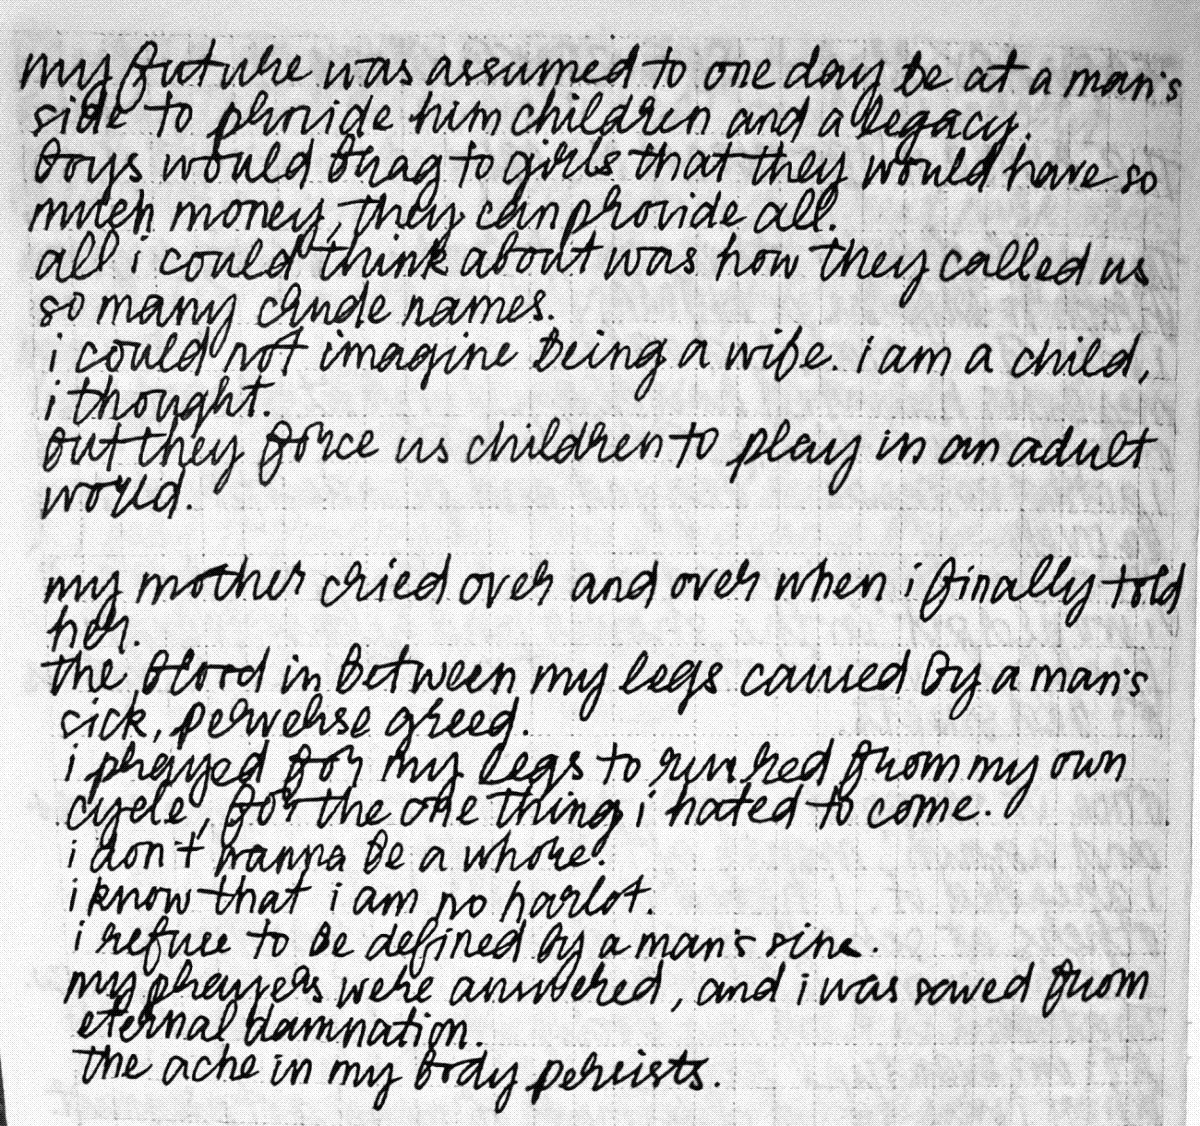 my future was assumed to one day be at a man's
side to provide him children and a legacy.
boys would brag to girls that they would have so
much money, they can provide all.
all i could think about was how they called us
so many crude names.
i could not imagine being a wife. i am a child,
i thought.
but they force us children to play in an adult
world.
my mother cried over and over when i finally told
her.
the blood in between my legs caused by a man's
sick, perverse greed.
i prayed for my legs to run red from my own
cycle, for the one thing i hated to come.
i don't wanna be a whore.
i know that i am no harlot.
i refuse to be defined by a man's sins.
my prayers were answered, and i was saved from
eternal damnation.
the ache in my body persists.